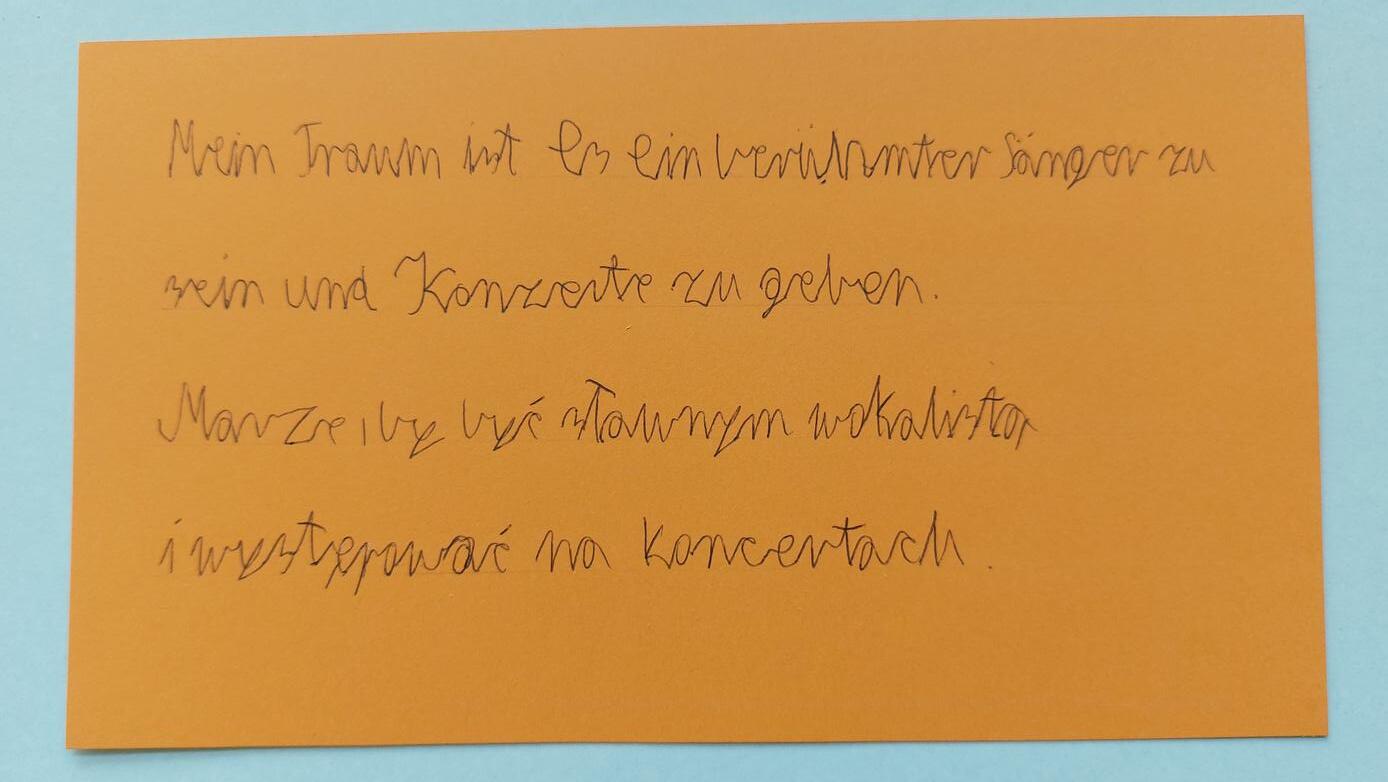 Mein Traum ist Es ein berühmter Sänger zu
sein und Konzerte zu geben.
Marze, by być sławnym wokalistą
i występować na koncertach.